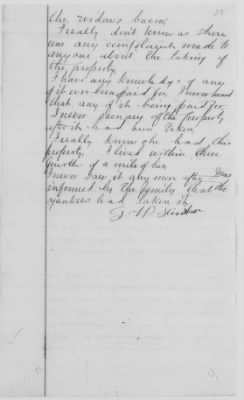 28
the widows bacon
I really don't know as there
was any complaynts made to
anyone about the taking of
the property.
I have any knowledge of any
of it ever been paid for I never heard
that any of it being paid for
I never seen any of the property
after it had been taken.
I really know she had this
property. I lived within three
fourth of a mile of her.
I never saw it any more after I was
informed by the family that the
yankees had taken it